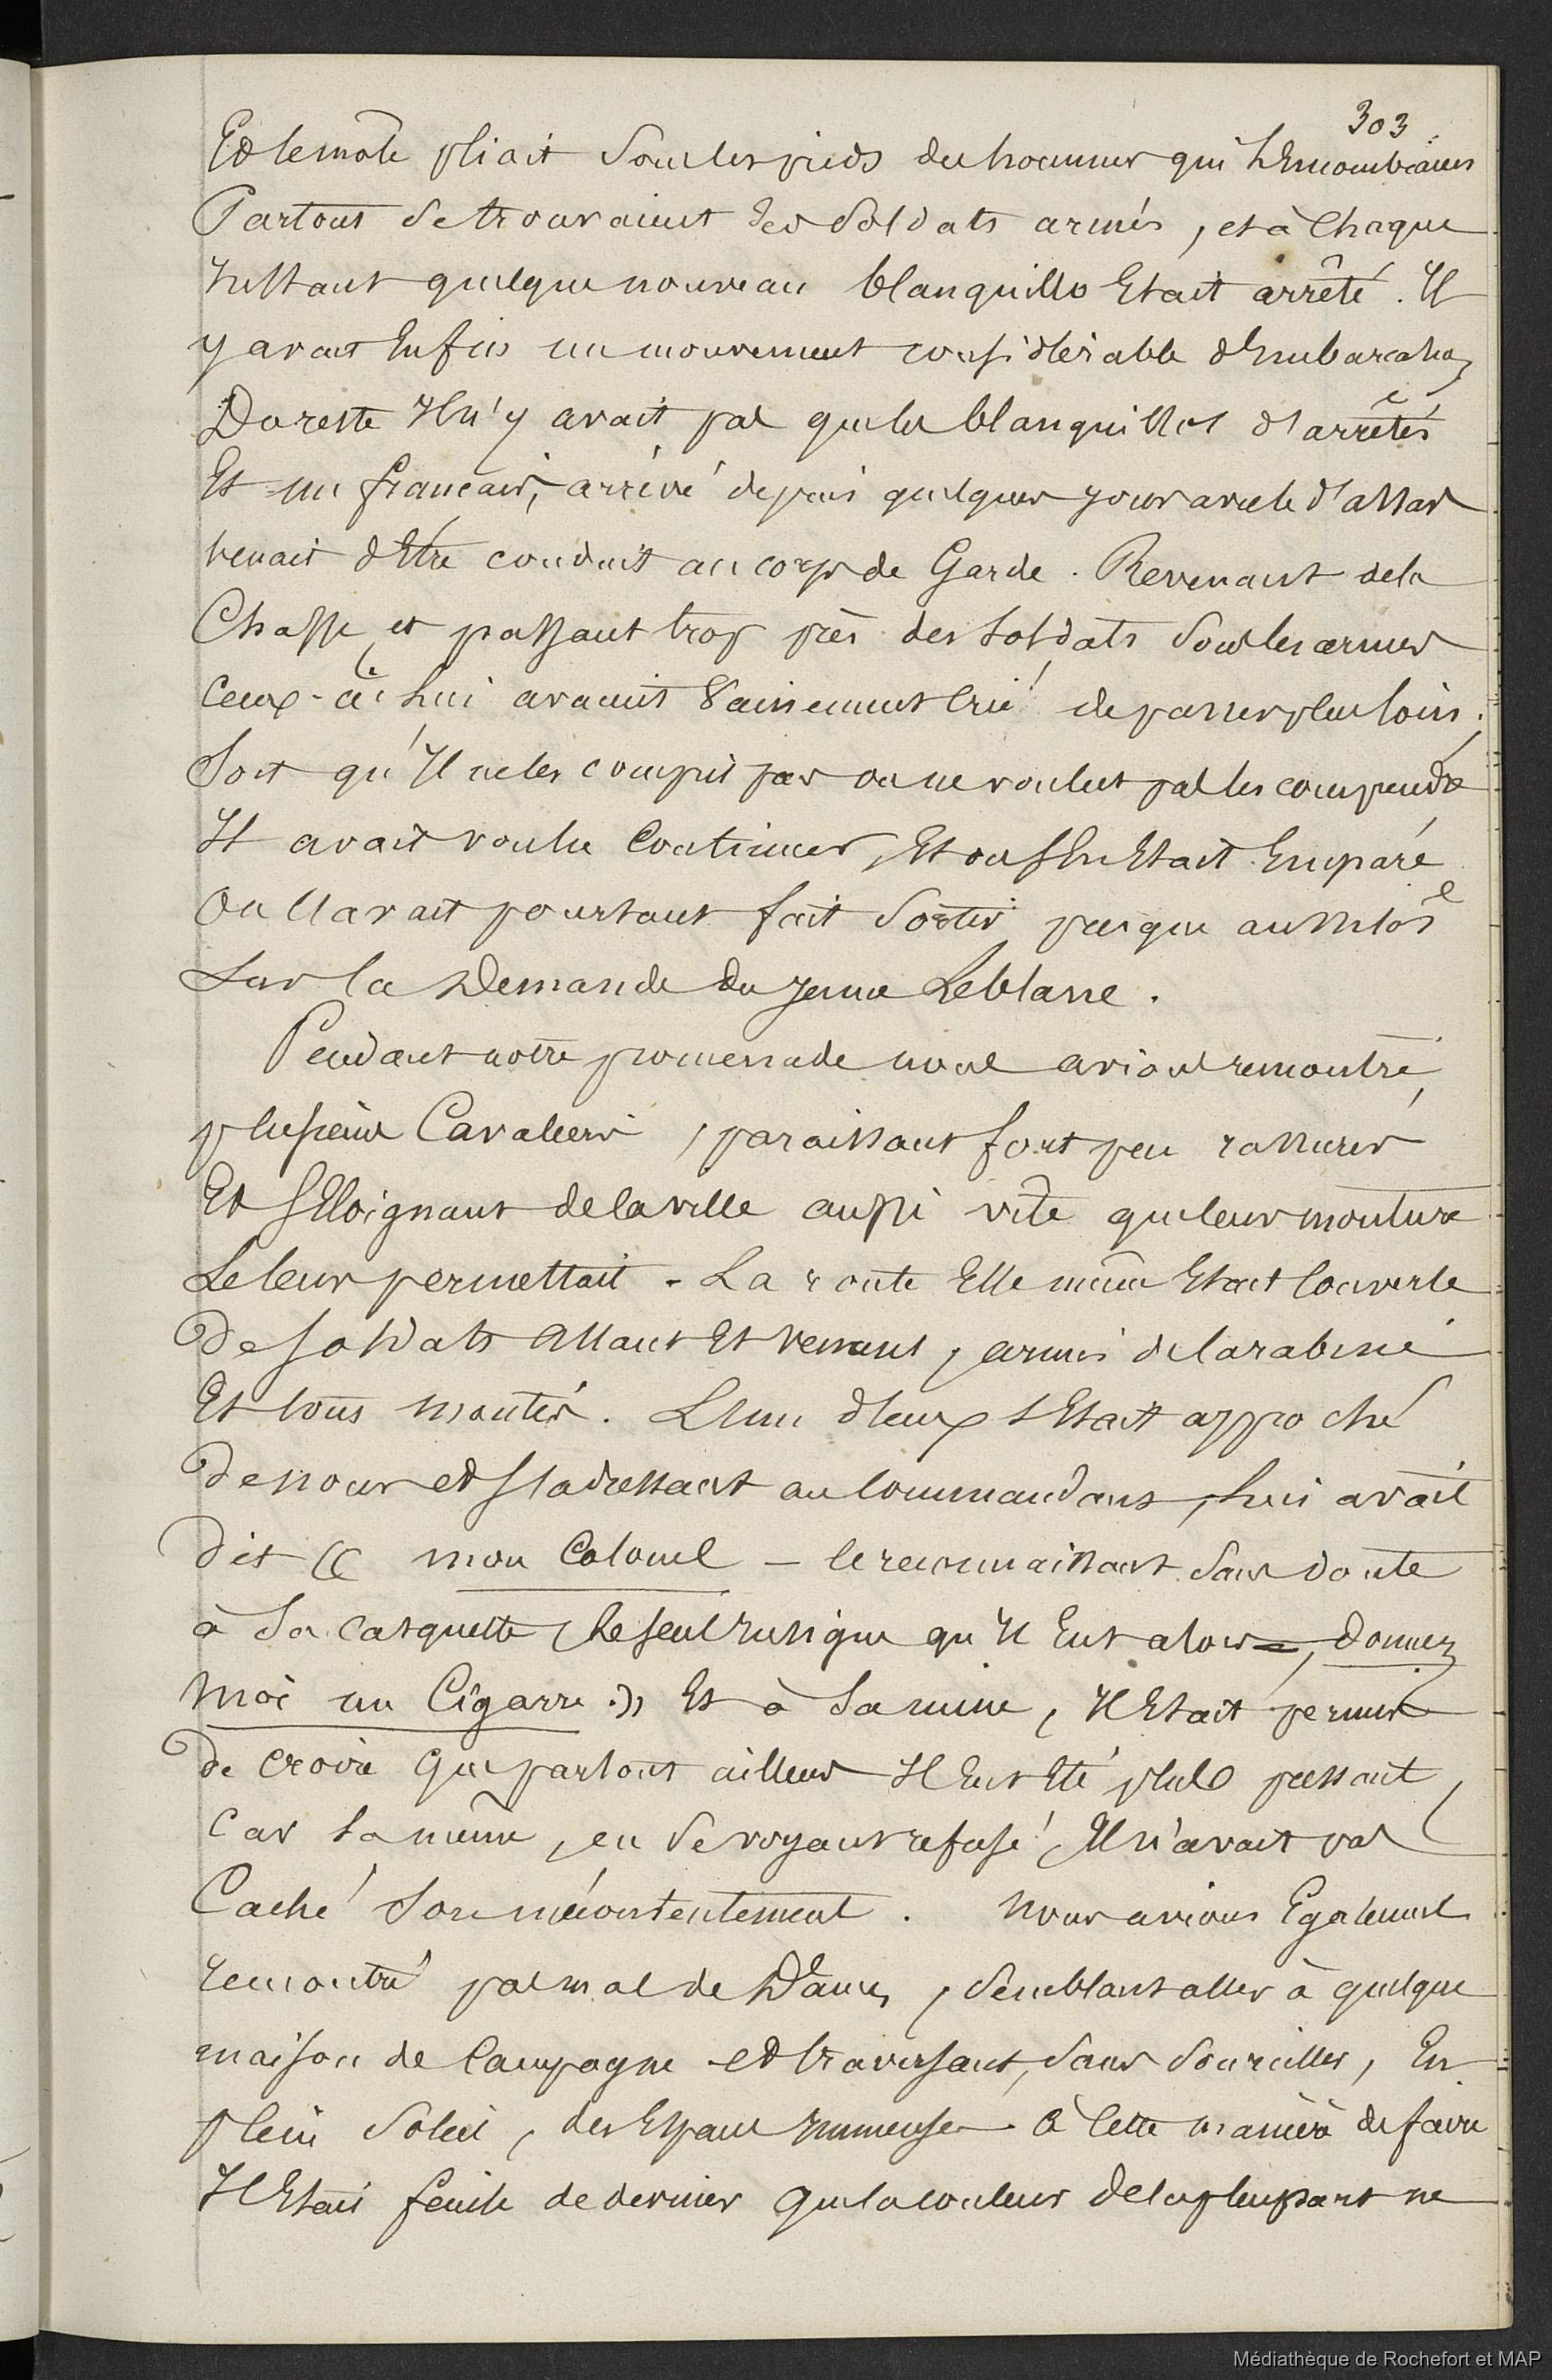 303
Et le môle pliait sous les pieds des hommes qui l'Encombraient
Partout se trouvaient des soldats armés, et à Chaque
Instant quelque nouveau blanquillo Etait arrêté. Il
y avait Enfin un mouvement considérable d'Embarcations
Du reste Il n'y avait pas que les blanquillos d'arrêtés
Et un français, arrivé depuis quelques jours avec le d'assas
venait d'Etre conduit au corps de Garde. Revenant de la
Chasse, et passant trop près des soldats sous les armes
Ceux-ci lui avaient Vainement Crié de passer plus loin;
Soit qu'Il ne les comprit pas ou ne voulut pas les comprendre
Il avait voulu Continuer, Et on s'En Etait Emparé
On l'avait pourtant fait sortir presque aussitôt
Sur la Demande du jeune Leblanc.
Pendant notre promenade nous avions rencontré
plusieurs Cavaliers, paraissant fort peu rassurés
Et s'Eloignant de la ville aussi vîte que leur monture
Le leur permettait. La route Elle même Etait Couverte
De soldats Allant Et venant, armés de Carabine
Et tous montés. L'un d'Eux s'Etait approché
De nous et s'adressant au Commandant, lui avait
Dit (( mon Colonel – le reconnaissant sans doute
à Sa Casquette, le seul Insigne qu'Il Eut alors –, donnez
Moi un Cigarre.)) Et à Sa mine, Il Etait permis
De Croire Que partout ailleurs Il Eut Eté plus pressant,
Car là même, en se voyant refusé, Il n'avait pas
Caché Son mécontentement. Nous avions Egalement
rencontré pas mal de Dames, Semblant aller à quelque
maison de Campagne et traversant, Sans Sourciller, En
plein Soleil, des Espaces Immenses. à Cette manière de faire
Il Etait facile de deviner que la couleur de la plupart ne